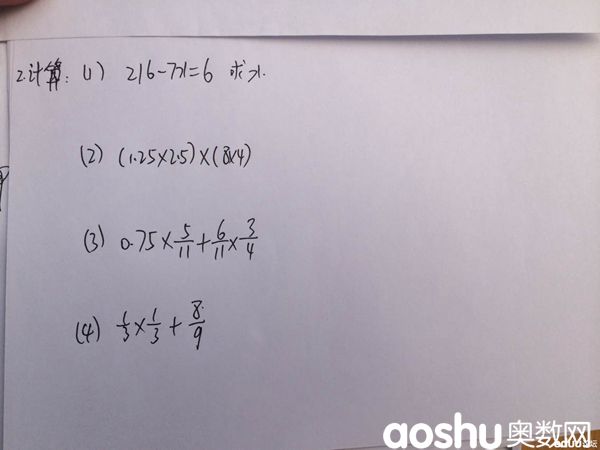 2.计算: (1) 216-7x=6 求x.
(2) (1.25×2.5)×(8×4)
(3) 0.75×5/11+6/11×3/4
(4) 1/3×1/3+8/9
aoshu奥数网